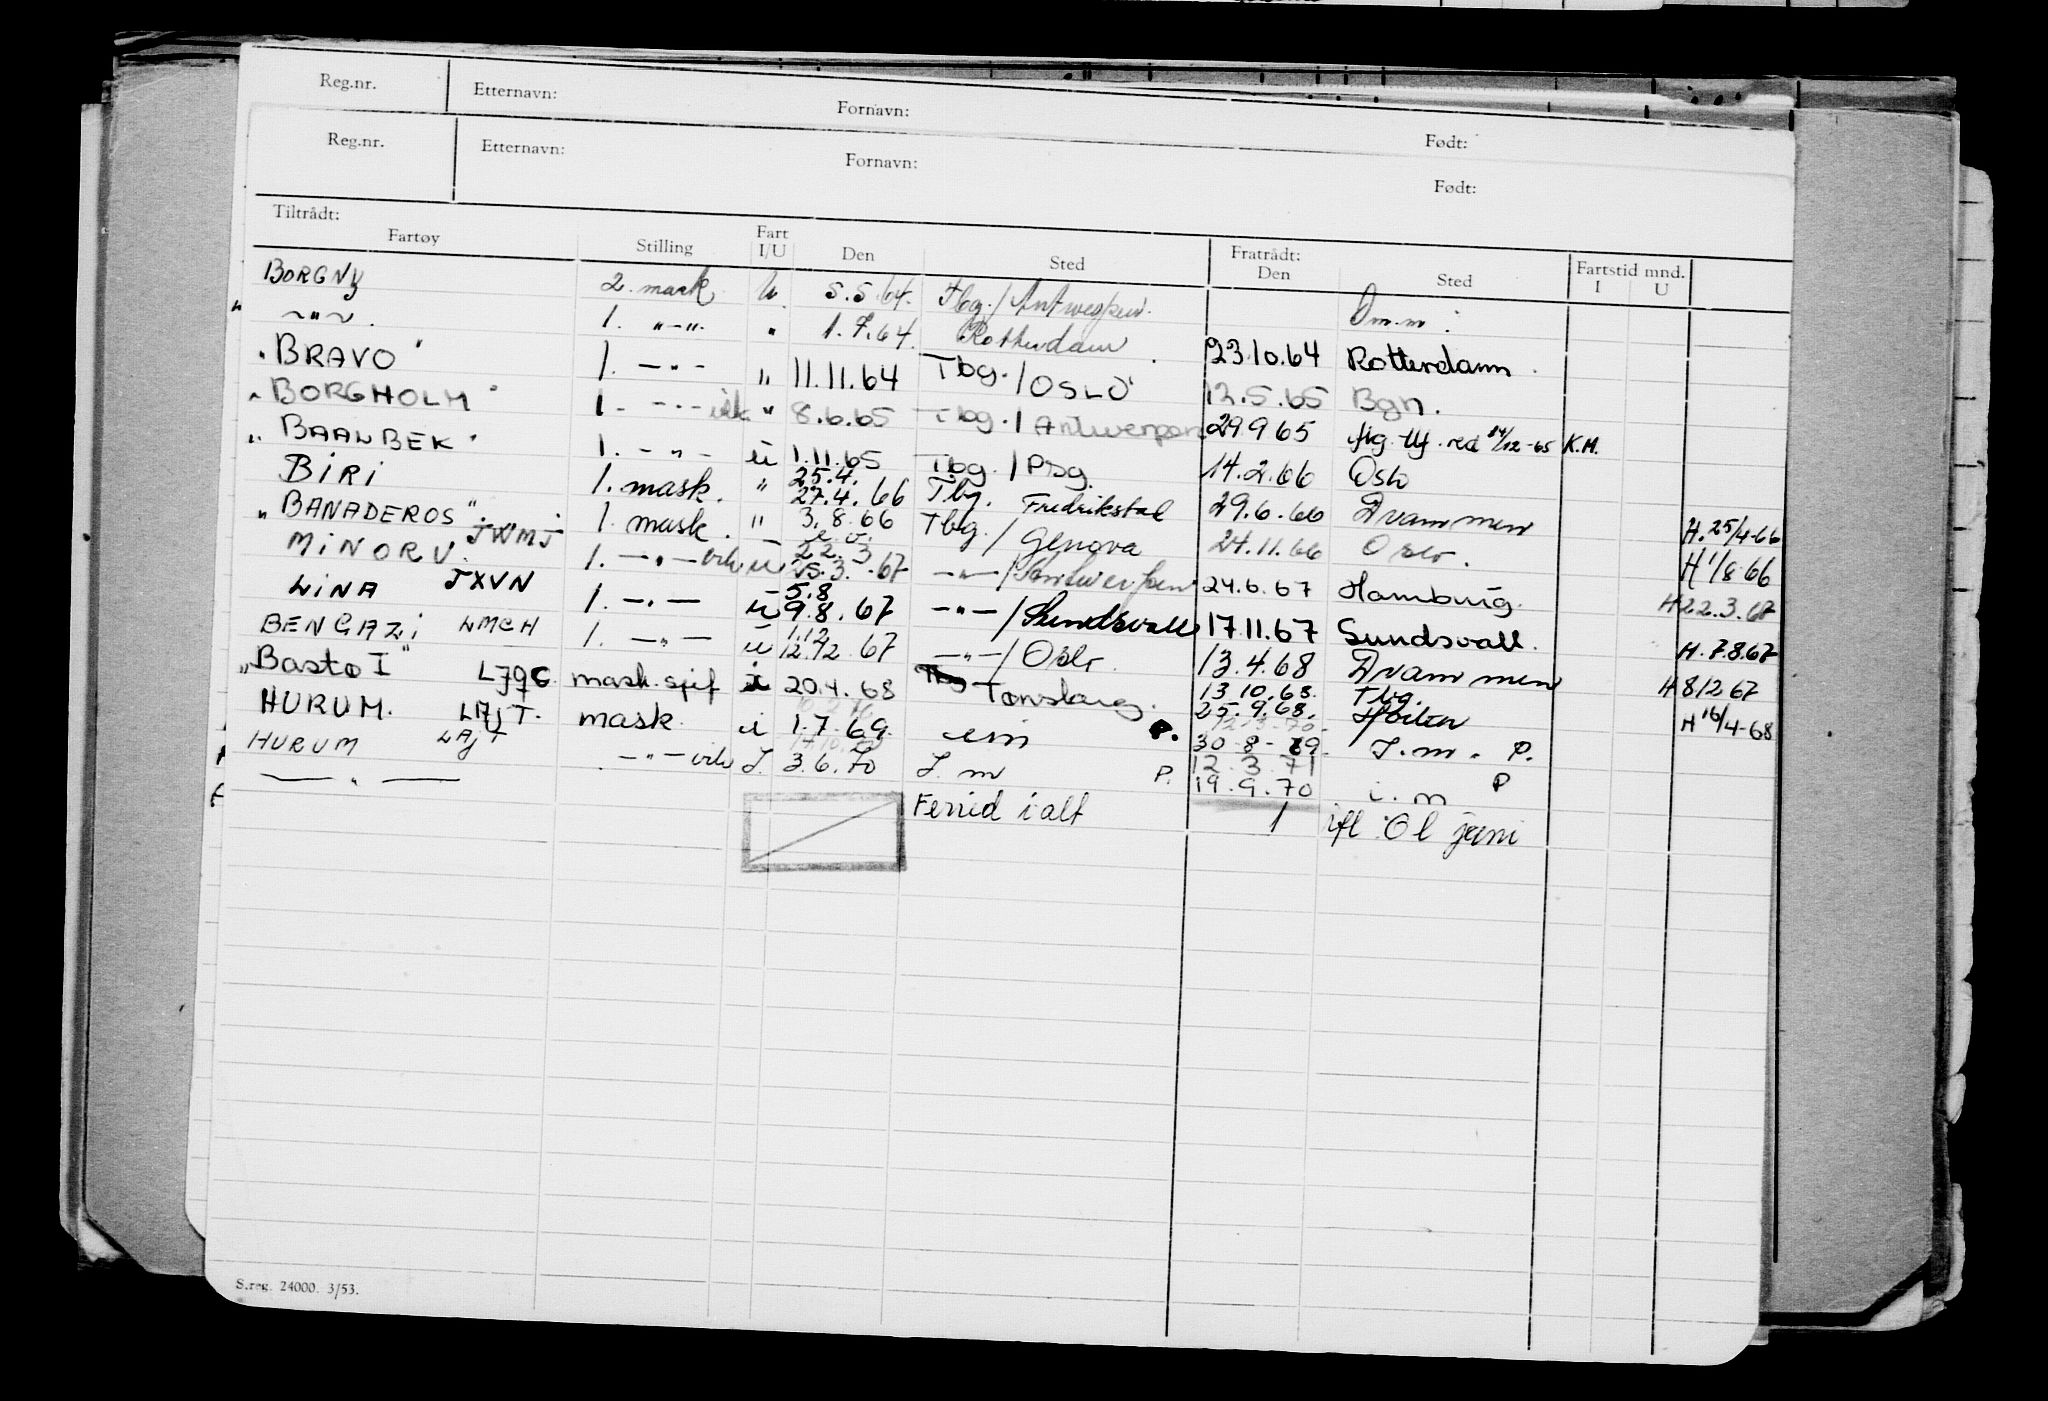 Reg.nr. Etternavn: Fornavn: Født:
Reg.nr. Etternavn: Fornavn: Født:
Tiltrådt: Fratrådt:
Fartøy Stilling Fart I/U Den Sted Den Sted Fartstid mnd. I U
BORGNY 2. mask. U. 5.5.64. Tbg./Antwerpen. Om.m:
~"~. 1. "-". " 1.7.64. Rotterdam 23.10.64 Rotterdam.
"BRAVO" 1. -"- " 11.11.64 Tbg./OSLO 12.5.65 Bgn.
"BORGHOLM" 1. -"- vik " 8.6.65 Tbg./Antwerpen 29.9.65 14/12-65 K.M.
"BAALBEK" 1. -"- ü 1.11.65 Tbg./Psg. 14.2.66 Oslo
BIRI 1. mask. " 25.4. 27.4.66 Tbg. Fredrikstad 29.6.66 Drammen H.25/4-66
"BANADEROS" JXMJ 1. mask. " 3.8.66 Tbg./Genova 24.11.66 Oslo. H 1/8 66
MINORU. 1. -"- vik ü 22.3 25.3.67 -"-/Antwerpen 24.6.67 Hamburg. H 22.3.67
LINA JXVN 1. -"- ü 5.8 9.8.67 -"-/Sundsvall 17.11.67 Sundsvall. H.7.8.67
BENGAZI LMCH 1. -"- ü 1.12 12.12.67 -"-/Oslo. 13.4.68 Drammen H 8/12 67
"Bastø I" LJQC mask. sjef i 20.4.68 Tønsberg. 13.10.68. Tbg. 25.9.68. Horten H 16/4-68
HURUM. LAJT. mask. i 1.7.69. eim P. 30-8-69. I.m. P.
HURUM LAJT -"- vik I. 3.6.70 I.m P. 12.3.71
— " — 19.9.70 i.m P
Feried i alt 1 ifl. Ol juni
S.reg. 24000. 3/53.